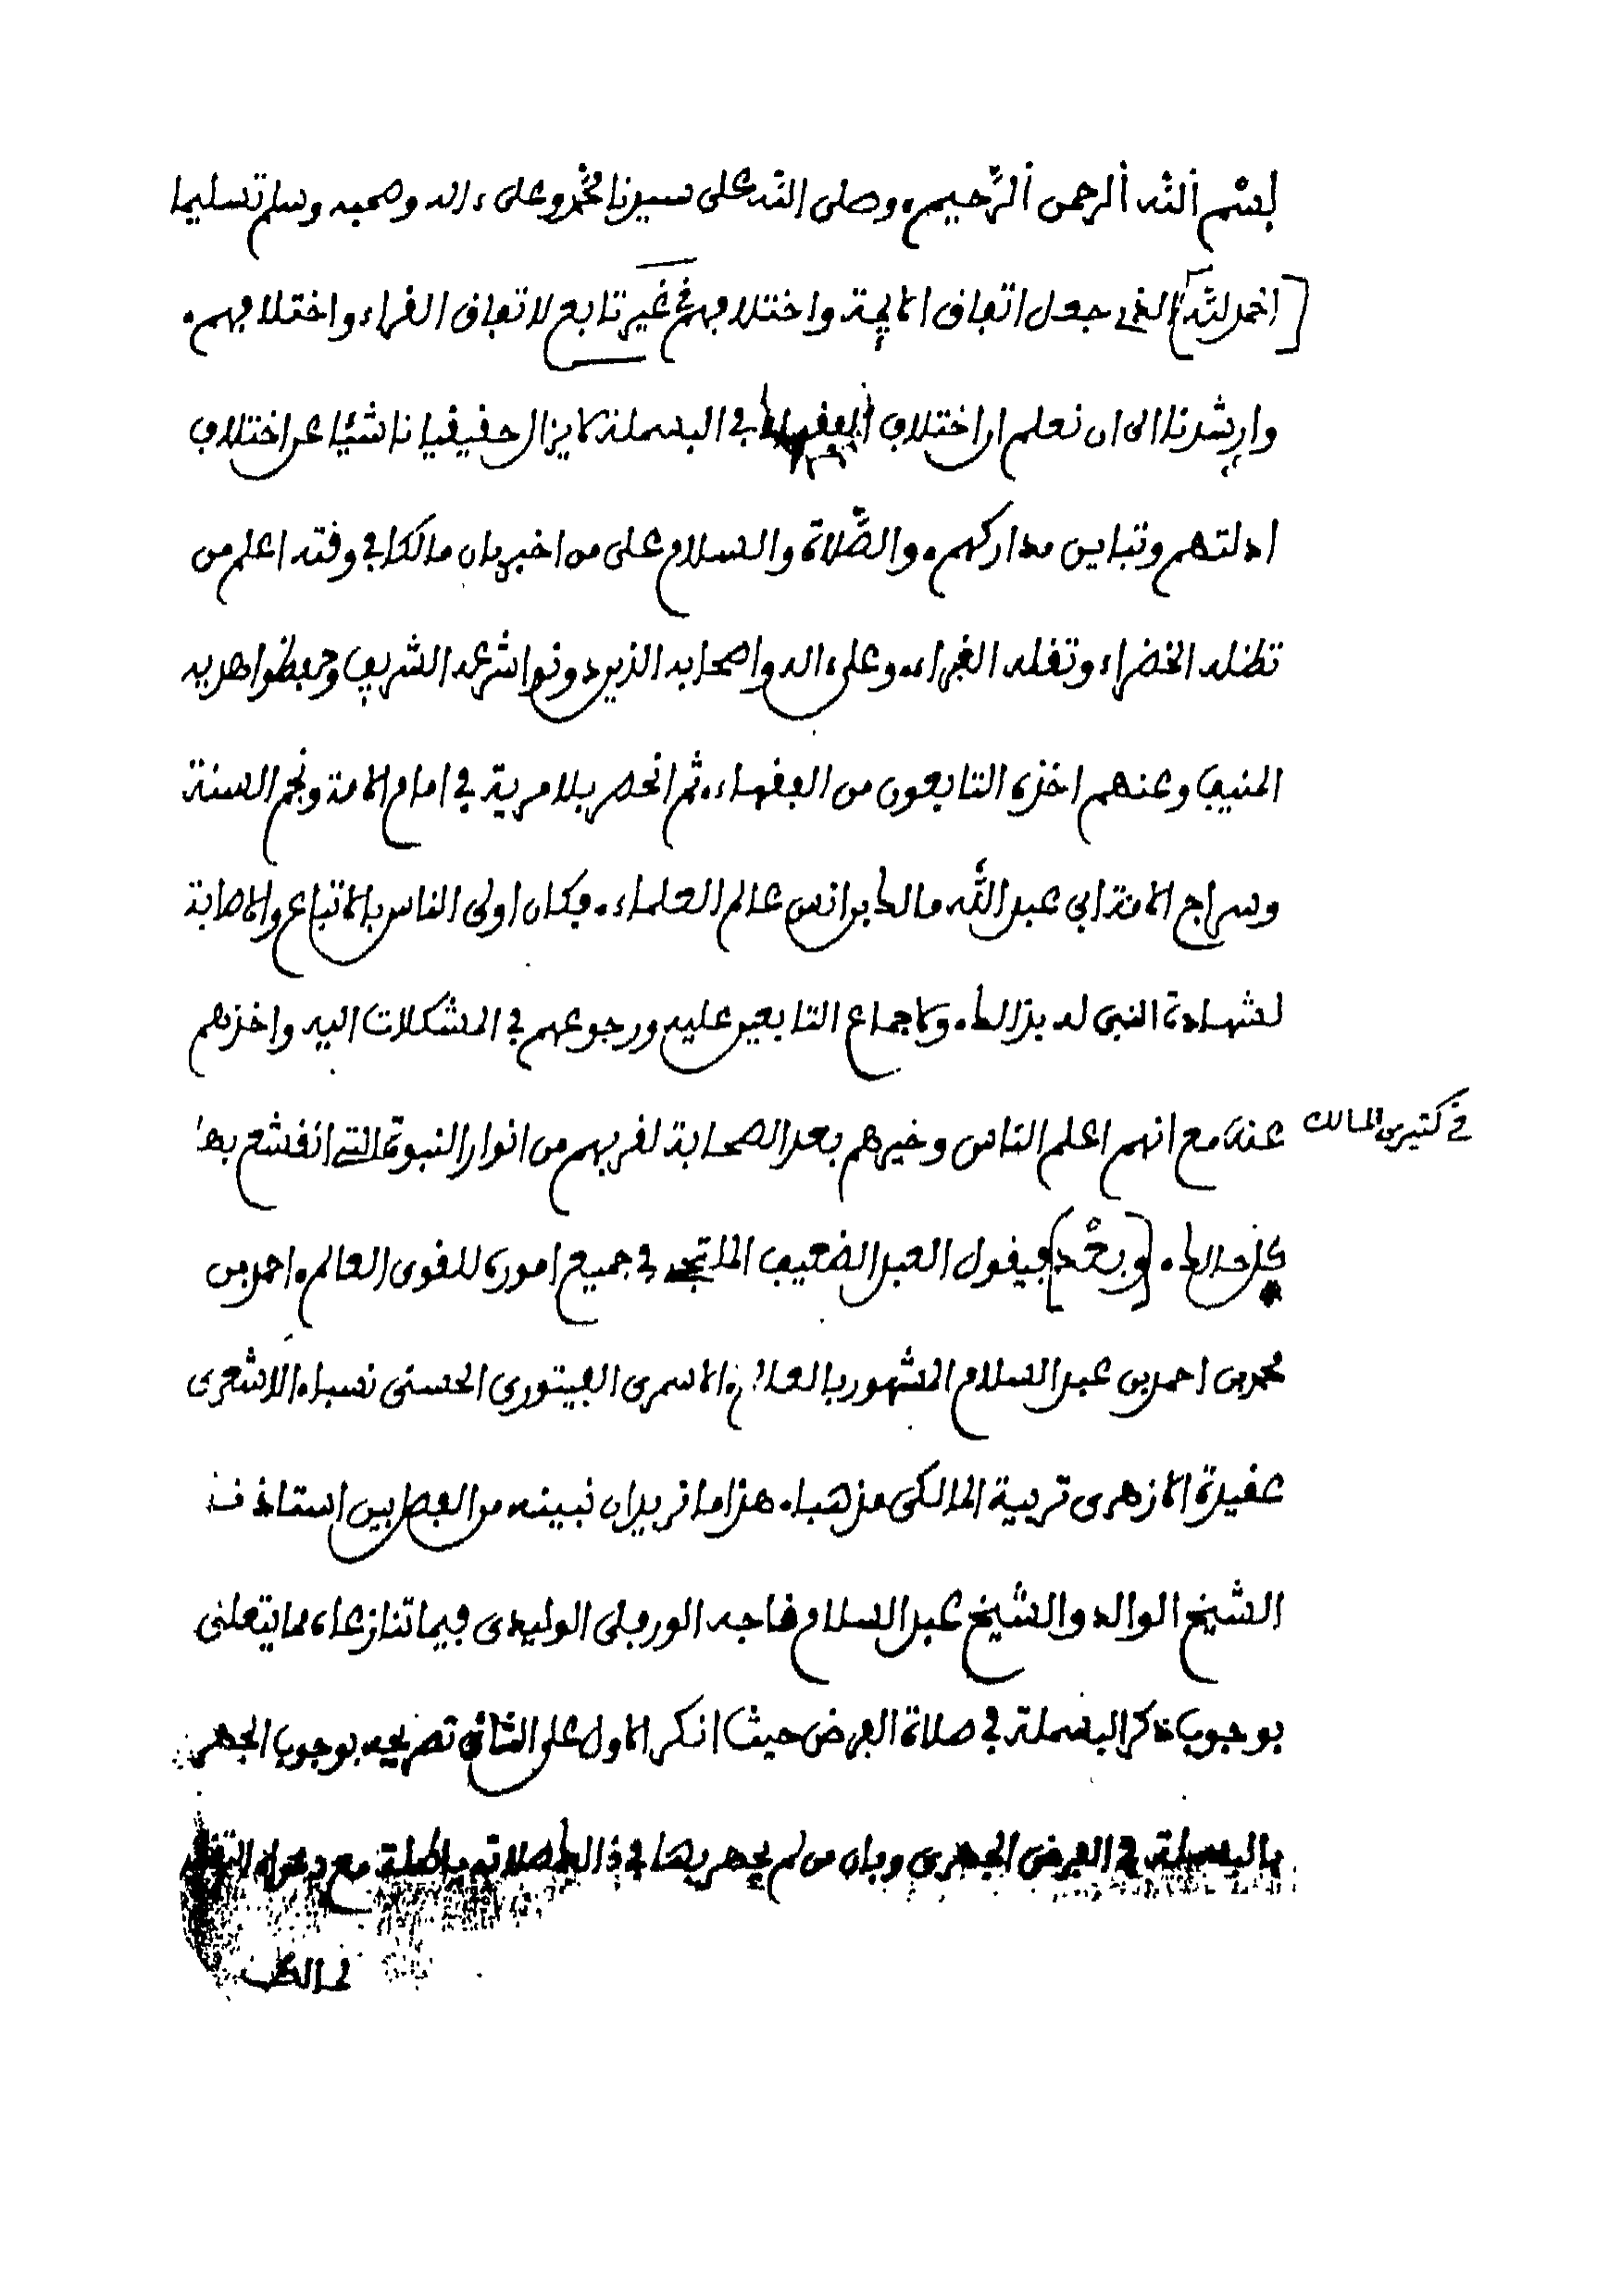 بسم الله الرحمن الرحيم. وصلى الله على سيدنا محمد وعلى ءاله وصحبه وسلم تسليما
[الحمد لله] الذي جعل اتفاق الايمة واختلافهم غير تابع لاتفاق القراء واختلافهم.
وارشدنا الى ان نعلم ان اختلاف الفقهاء في البسملة لا يزال حقيقيا ناشئا عن اختلاف
ادلتهم وتباين مداركهم. والصلاة والسلام على من اخبر بان مالكا في وقته اعلم من
تظله الخضراء وتقله الغبراء. وعلى ءاله واصحابه الذين دونوا شرعه الشريف وحفظوا هديه
المنيف وعنهم اخذه التابعون من الفقهاء. ثم انحصر بلا مرية في امام الايمة ونجم السنة
وسراج الامة ابي عبد الله مالك بن انس عالم العلماء. فكان اولى الناس بالاتباع والاصابة
لشهادة النبي له بذالك. ولاجماع التابعين عليه ورجوعهم في المشكلات اليه واخذهم
عنه مع انهم اعلم الناس وخيرهم بعد الصحابة لقربهم من انوار النبوة التي انقشع بها
في كثير من المسالك
كل حالك. [وبعد] فيقول العبد الضعيف الملتجئ في جميع اموره للقوى العالم. احمد بن
محمد بن احمد بن عبد السلام المشهور بالعالم. الاسمرى الفيتورى الحسنى نسبا. الاشعرى
عقيدة الازهرى تربية المالكى مذهبا. هذا ما نريد ان نبينه من الفصل بين استاذنا
الشيخ الوالد والشيخ عبد السلام فاجه الورفلى الوليدى فيما تنازعاه مما يتعلق
بوجوب ذكر البسملة في صلاة الفرض حيث انكر الاول على الثاني تصريحه بوجوب الجهر
بالبسملة في الفرض الجهرى وبان من لم يجهر بها في ذالك صلاته باطلة مع دعواه